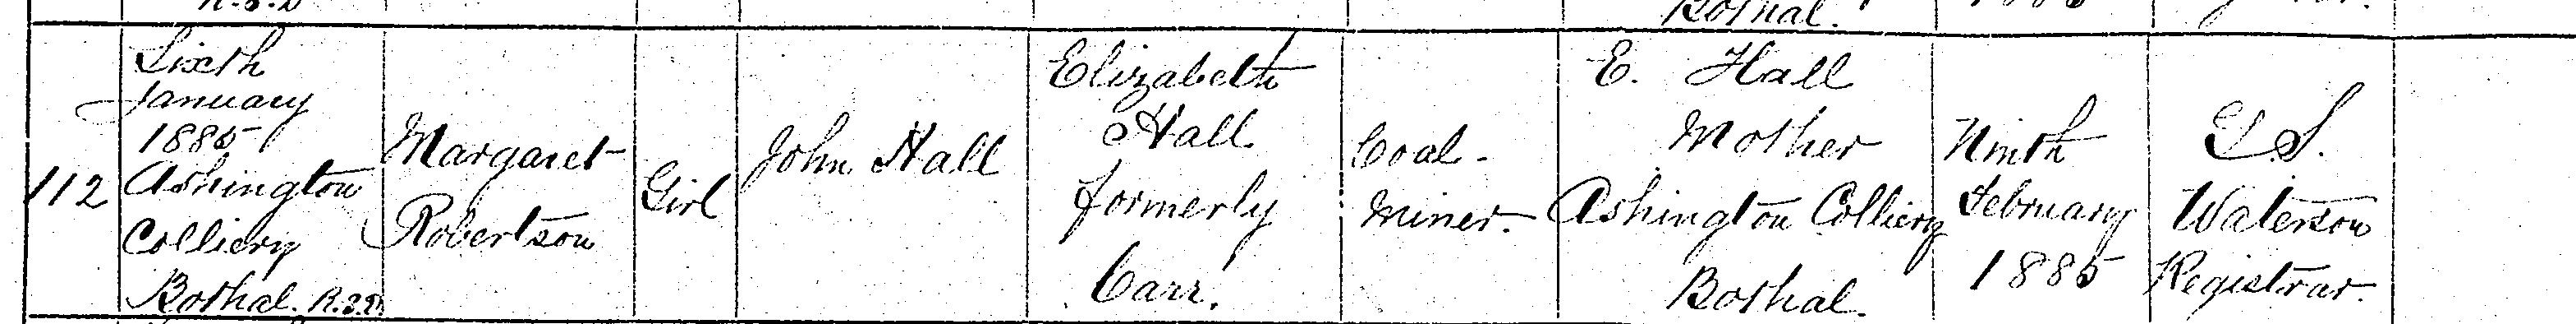 R.S.D
Bothal.
1885
112
Sixth
January
1885
Ashington
Colliery
Bothal. R.S.D.
Margaret
Robertson
Girl
John Hall
Elizabeth
Hall
formerly
Carr.
Coal-
miner.
E. Hall
Mother
Ashington Colliery
Bothal.
Ninth
February
1885
Waterson
Registrar.